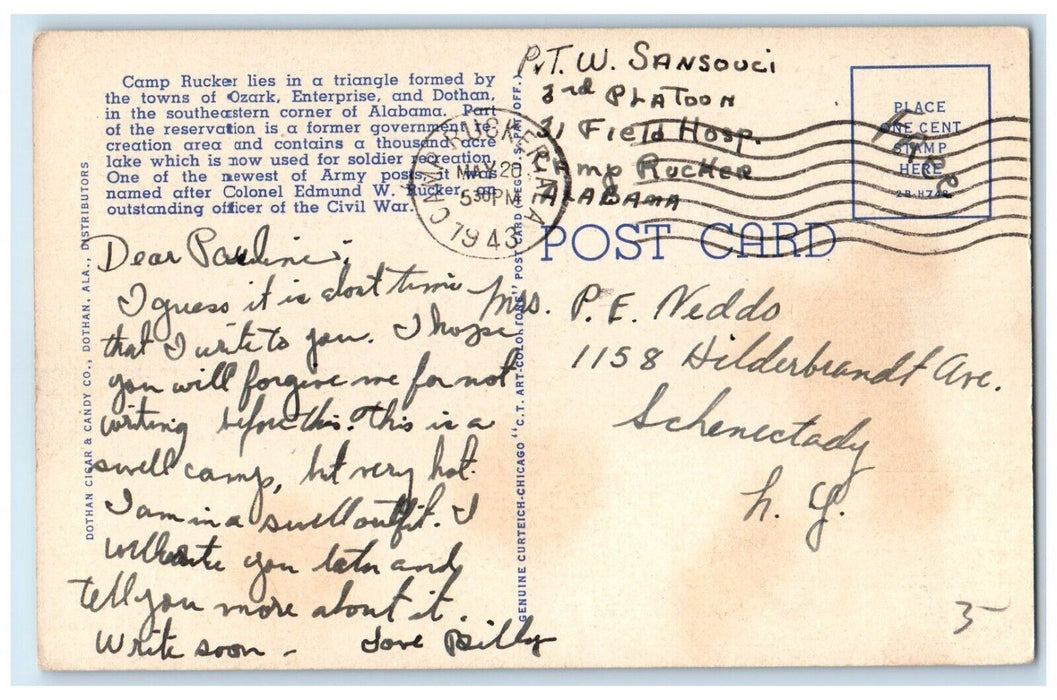 Camp Rucker lies in a triangle formed by
the towns of Ozark, Enterprise, and Dothan,
in the southeastern corner of Alabama. Part
of the reservation is a former government re-
creation area and contains a thousand acre
lake which is now used for soldier recreation.
One of the newest of Army posts, it was
named after Colonel Edmund W. Rucker, an
outstanding officer of the Civil War.
DOTHAN CIGAR & CANDY CO., DOTHAN, ALA., DISTRIBUTORS
Dear Pauline;
I guess it is about time
that I write to you. I hope
you will forgive me for not
writing before this. This is a
swell camp, but very hot.
I am in a swell outfit. I
will write you later and
tell you more about it.
Write soon -
Love Billy
GENUINE CURTEICH-CHICAGO "C.T. ART-COLORTONE" POST CARD (REG. U.S. PAT. OFF.)
CAMP RUCKER, ALA
MAY 20
5 30 PM
1943
PvT. W. SANSOUCI
3rd PLATOON
31 Field Hosp.
Camp RUCKER
ALABAMA
PLACE
ONE CENT
STAMP
HERE
2B-H748
Free
POST CARD
Mrs. P. E. Neddo
1158 Hilderbrandt Ave.
Schenectady
N. Y.
5